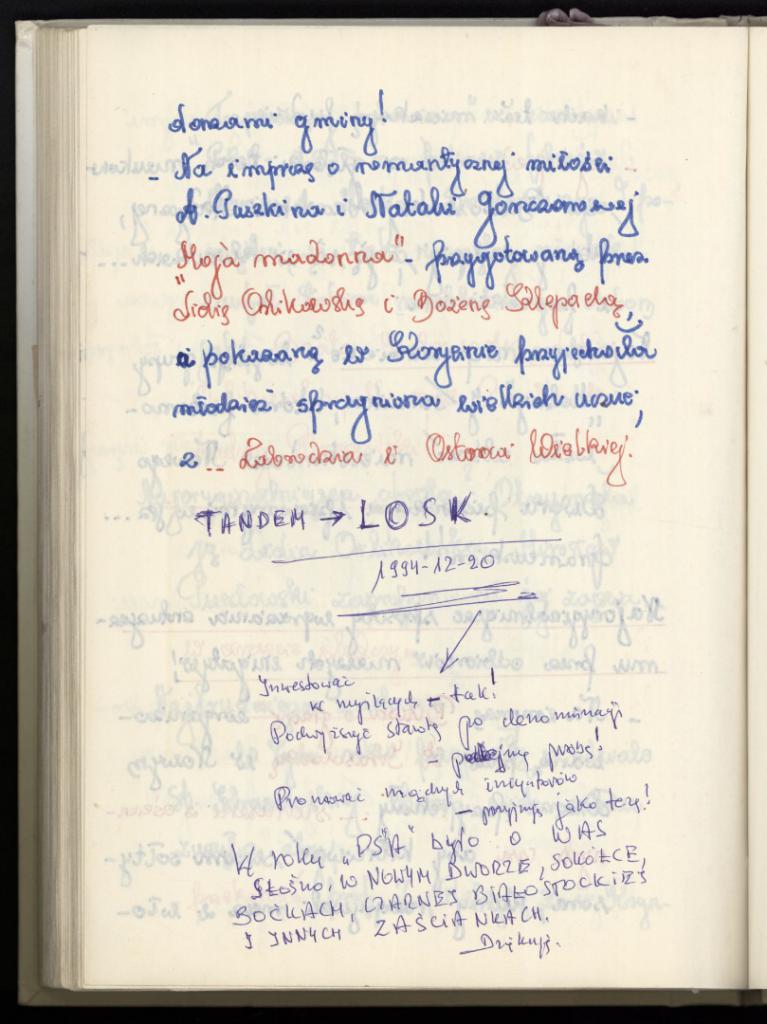 dorzami gminy!
- Na imprezę o romantycznej miłości
A. Puszkina i Natalii Gonczarowej
"Moja madonna" - przygotowaną przez
Lidię Orlikowską i Bożenę Szlepadą,
a pokazaną w Korycinie przyjechała
młodzież spragniona wielkich uczuć,
z .. Zabrodzia i Ostrowi Wielkiej.
TANDEM → LOSK.
1994-12-20
Inwestować
w myślących - tak!
Podwyższyć stawkę po denominacji
- podejmę próbę!
Promować mądrych inicjatorów
- przyjmuję jako tezę!
W roku "DS'A" było o WAS
GŁOŚNO, W NOWYM DWORZE, SOKÓŁCE,
BOĆKACH, CZARNEJ BIAŁOSTOCKIEJ
I INNYCH ZAŚCIANKACH.
Dziękuję.